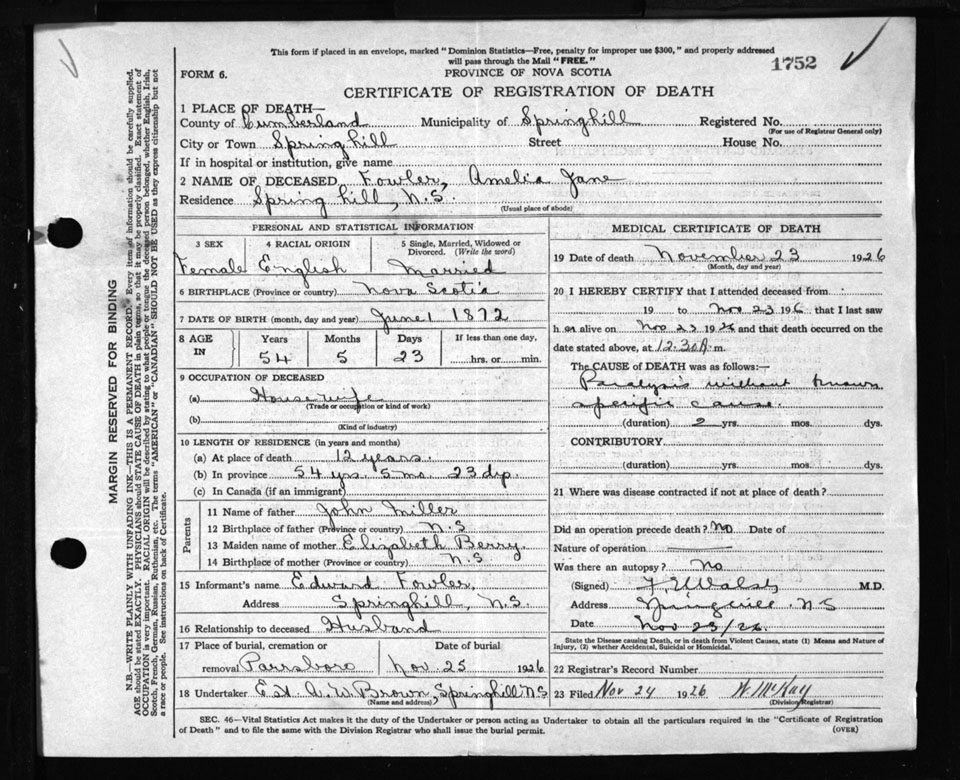 This form if placed in an envelope, marked "Dominion Statistics—Free, penalty for improper use $300," and properly addressed
will pass through the Mail "FREE."
1752
FORM 6.
PROVINCE OF NOVA SCOTIA
CERTIFICATE OF REGISTRATION OF DEATH
1 PLACE OF DEATH—
County of Cumberland Municipality of Springhill Registered No.
(For use of Registrar General only)
City or Town Springhill Street House No.
If in hospital or institution, give name
2 NAME OF DECEASED Fowler, Amelia Jane
Residence Spring hill, N.S.
(Usual place of abode)
PERSONAL AND STATISTICAL INFORMATION
3 SEX 4 RACIAL ORIGIN 5 Single, Married, Widowed or
Divorced. (Write the word)
Female English Married
6 BIRTHPLACE (Province or country) Nova Scotia
7 DATE OF BIRTH (month, day and year) June 1 1872
8 AGE
IN
Years Months Days If less than one day,
54 5 23 hrs. or min.
9 OCCUPATION OF DECEASED
(a) House wife
(Trade or occupation or kind of work)
(b)
(Kind of industry)
10 LENGTH OF RESIDENCE (in years and months)
(a) At place of death 12 years.
(b) In province 54 yrs. 5 mo. 23 dys
(c) In Canada (if an immigrant)
Parents
11 Name of father John Miller
12 Birthplace of father (Province or country) N.S
13 Maiden name of mother Elizabeth Berry.
14 Birthplace of mother (Province or country) N.S
15 Informant's name Edward Fowler,
Address Springhill, N.S.
16 Relationship to deceased Husband
17 Place of burial, cremation or Date of burial
removal Parrsboro Nov. 25 1926
18 Undertaker Est. A. W. Brown, Springhill NS
(Name and address)
MEDICAL CERTIFICATE OF DEATH
19 Date of death November 23 1926
(Month, day and year)
20 I HEREBY CERTIFY that I attended deceased from
19 to Nov 23 1926 that I last saw
h er alive on Nov 23 1926 and that death occurred on
date stated above, at 12.30 A. m.
The CAUSE of DEATH was as follows:—
Paralysis without known
specific cause.
(duration) 2 yrs. mos. dys.
CONTRIBUTORY
(duration) yrs. mos. dys.
21 Where was disease contracted if not at place of death?
Did an operation precede death? No Date of
Nature of operation
Was there an autopsy? No
(Signed) Walsh M.D.
Address Springhill NS
Date Nov 23/26.
State the Disease causing Death, or in death from Violent Causes, state (1) Means and Nature of
Injury, (2) whether Accidental, Suicidal or Homicidal.
22 Registrar's Record Number
23 Filed Nov 24 1926 W. McKay
(Division Registrar)
SEC. 46—Vital Statistics Act makes it the duty of the Undertaker or person acting as Undertaker to obtain all the particulars required in the "Certificate of Registration
of Death" and to file the same with the Division Registrar who shall issue the burial permit.
(OVER)
MARGIN RESERVED FOR BINDING
N.B.—WRITE PLAINLY WITH UNFADING INK—THIS IS A PERMANENT RECORD. Every item of information should be carefully supplied.
AGE should be stated EXACTLY. PHYSICIANS should STATE CAUSE OF DEATH in plain terms, so that it may be properly classified. Exact statement of
OCCUPATION is very important. RACIAL ORIGIN will be described by stating to what people or tongue the deceased person belonged, whether English, Irish,
Scotch, French, German, Russian, Ruthenian, etc. The terms "AMERICAN" or "CANADIAN" SHOULD NOT BE USED as they express citizenship but not
a race or people. See instructions on back of Certificate.